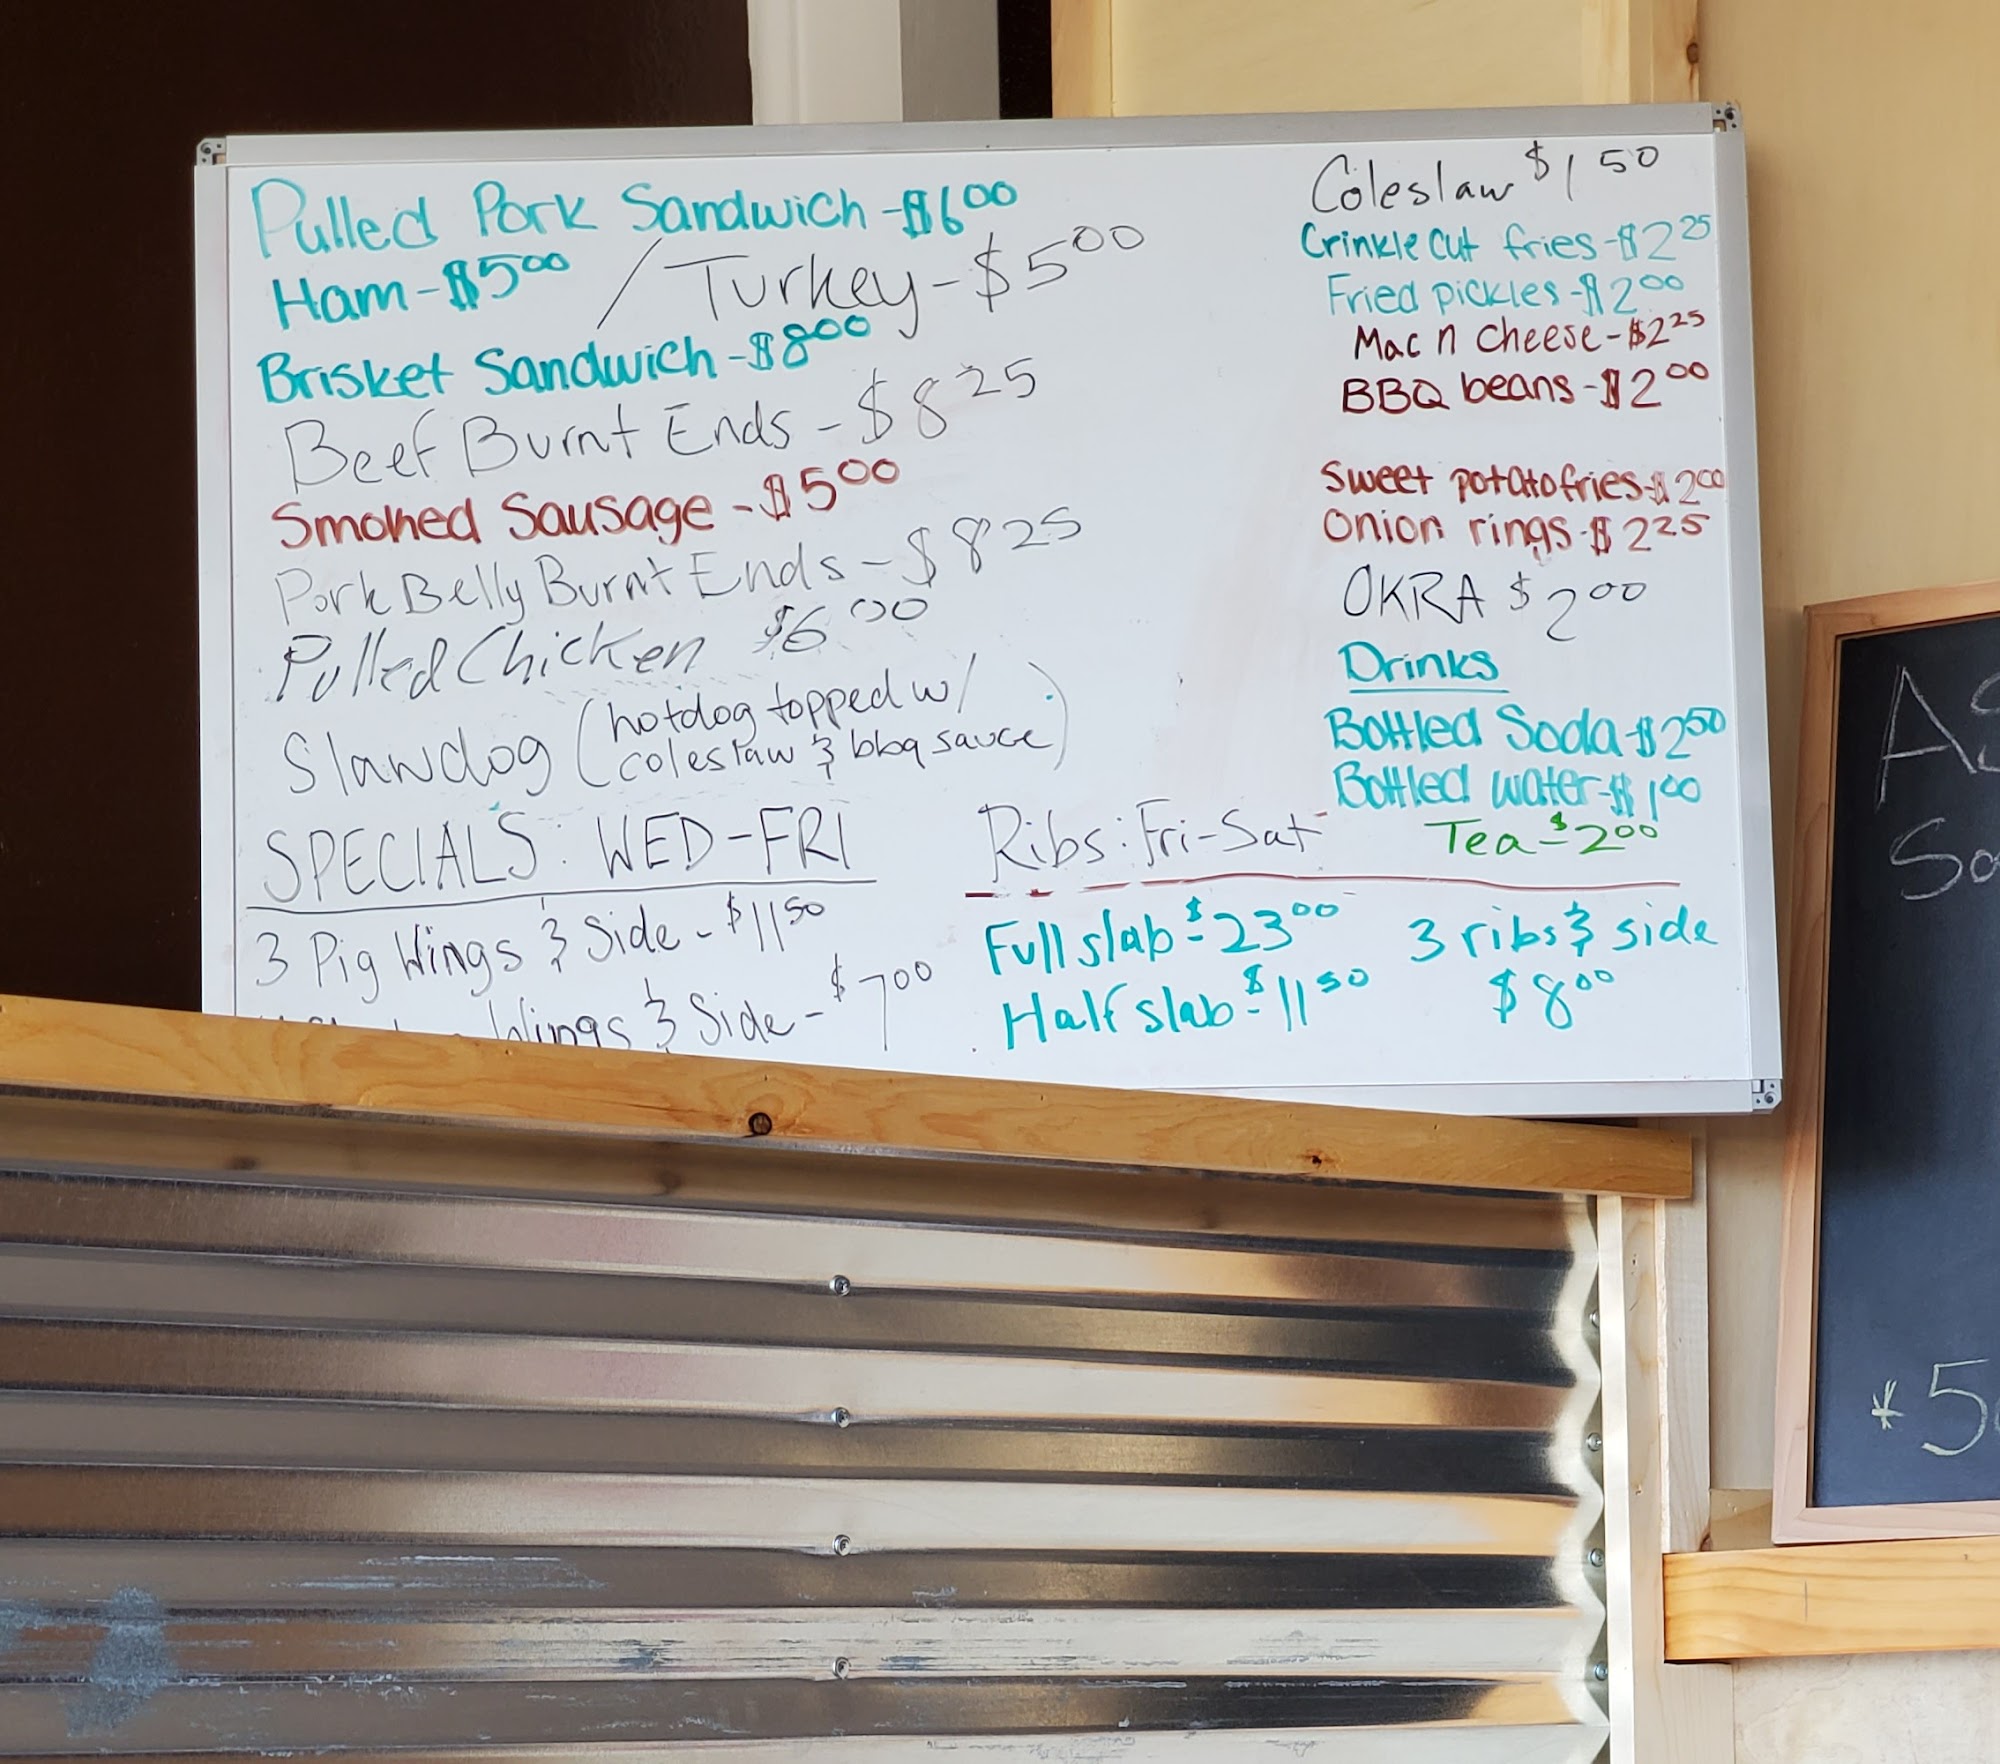 Pulled Pork Sandwich - $6.00
Ham - $5.00 / Turkey - $5.00
Brisket Sandwich - $8.00
Beef Burnt Ends - $8.25
Smoked Sausage - $5.00
Pork Belly Burnt Ends - $8.25
Pulled Chicken $6.00
Slawdog (hotdog topped w/
coleslaw & bbq sauce)
SPECIALS: WED-FRI
3 Pig Wings & Side - $11.50
Wings & Side - $7.00
Coleslaw $1.50
Crinkle cut fries - $2.25
Fried pickles - $2.00
Mac n cheese - $2.25
BBQ beans - $2.00
Sweet potato fries - $2.00
Onion rings - $2.25
OKRA $2.00
Drinks
Bottled Soda - $2.50
Bottled water - $1.00
Tea - $2.00
Ribs: Fri-Sat
Full slab - $23.00
Half slab - $11.50
3 ribs & side
$8.00